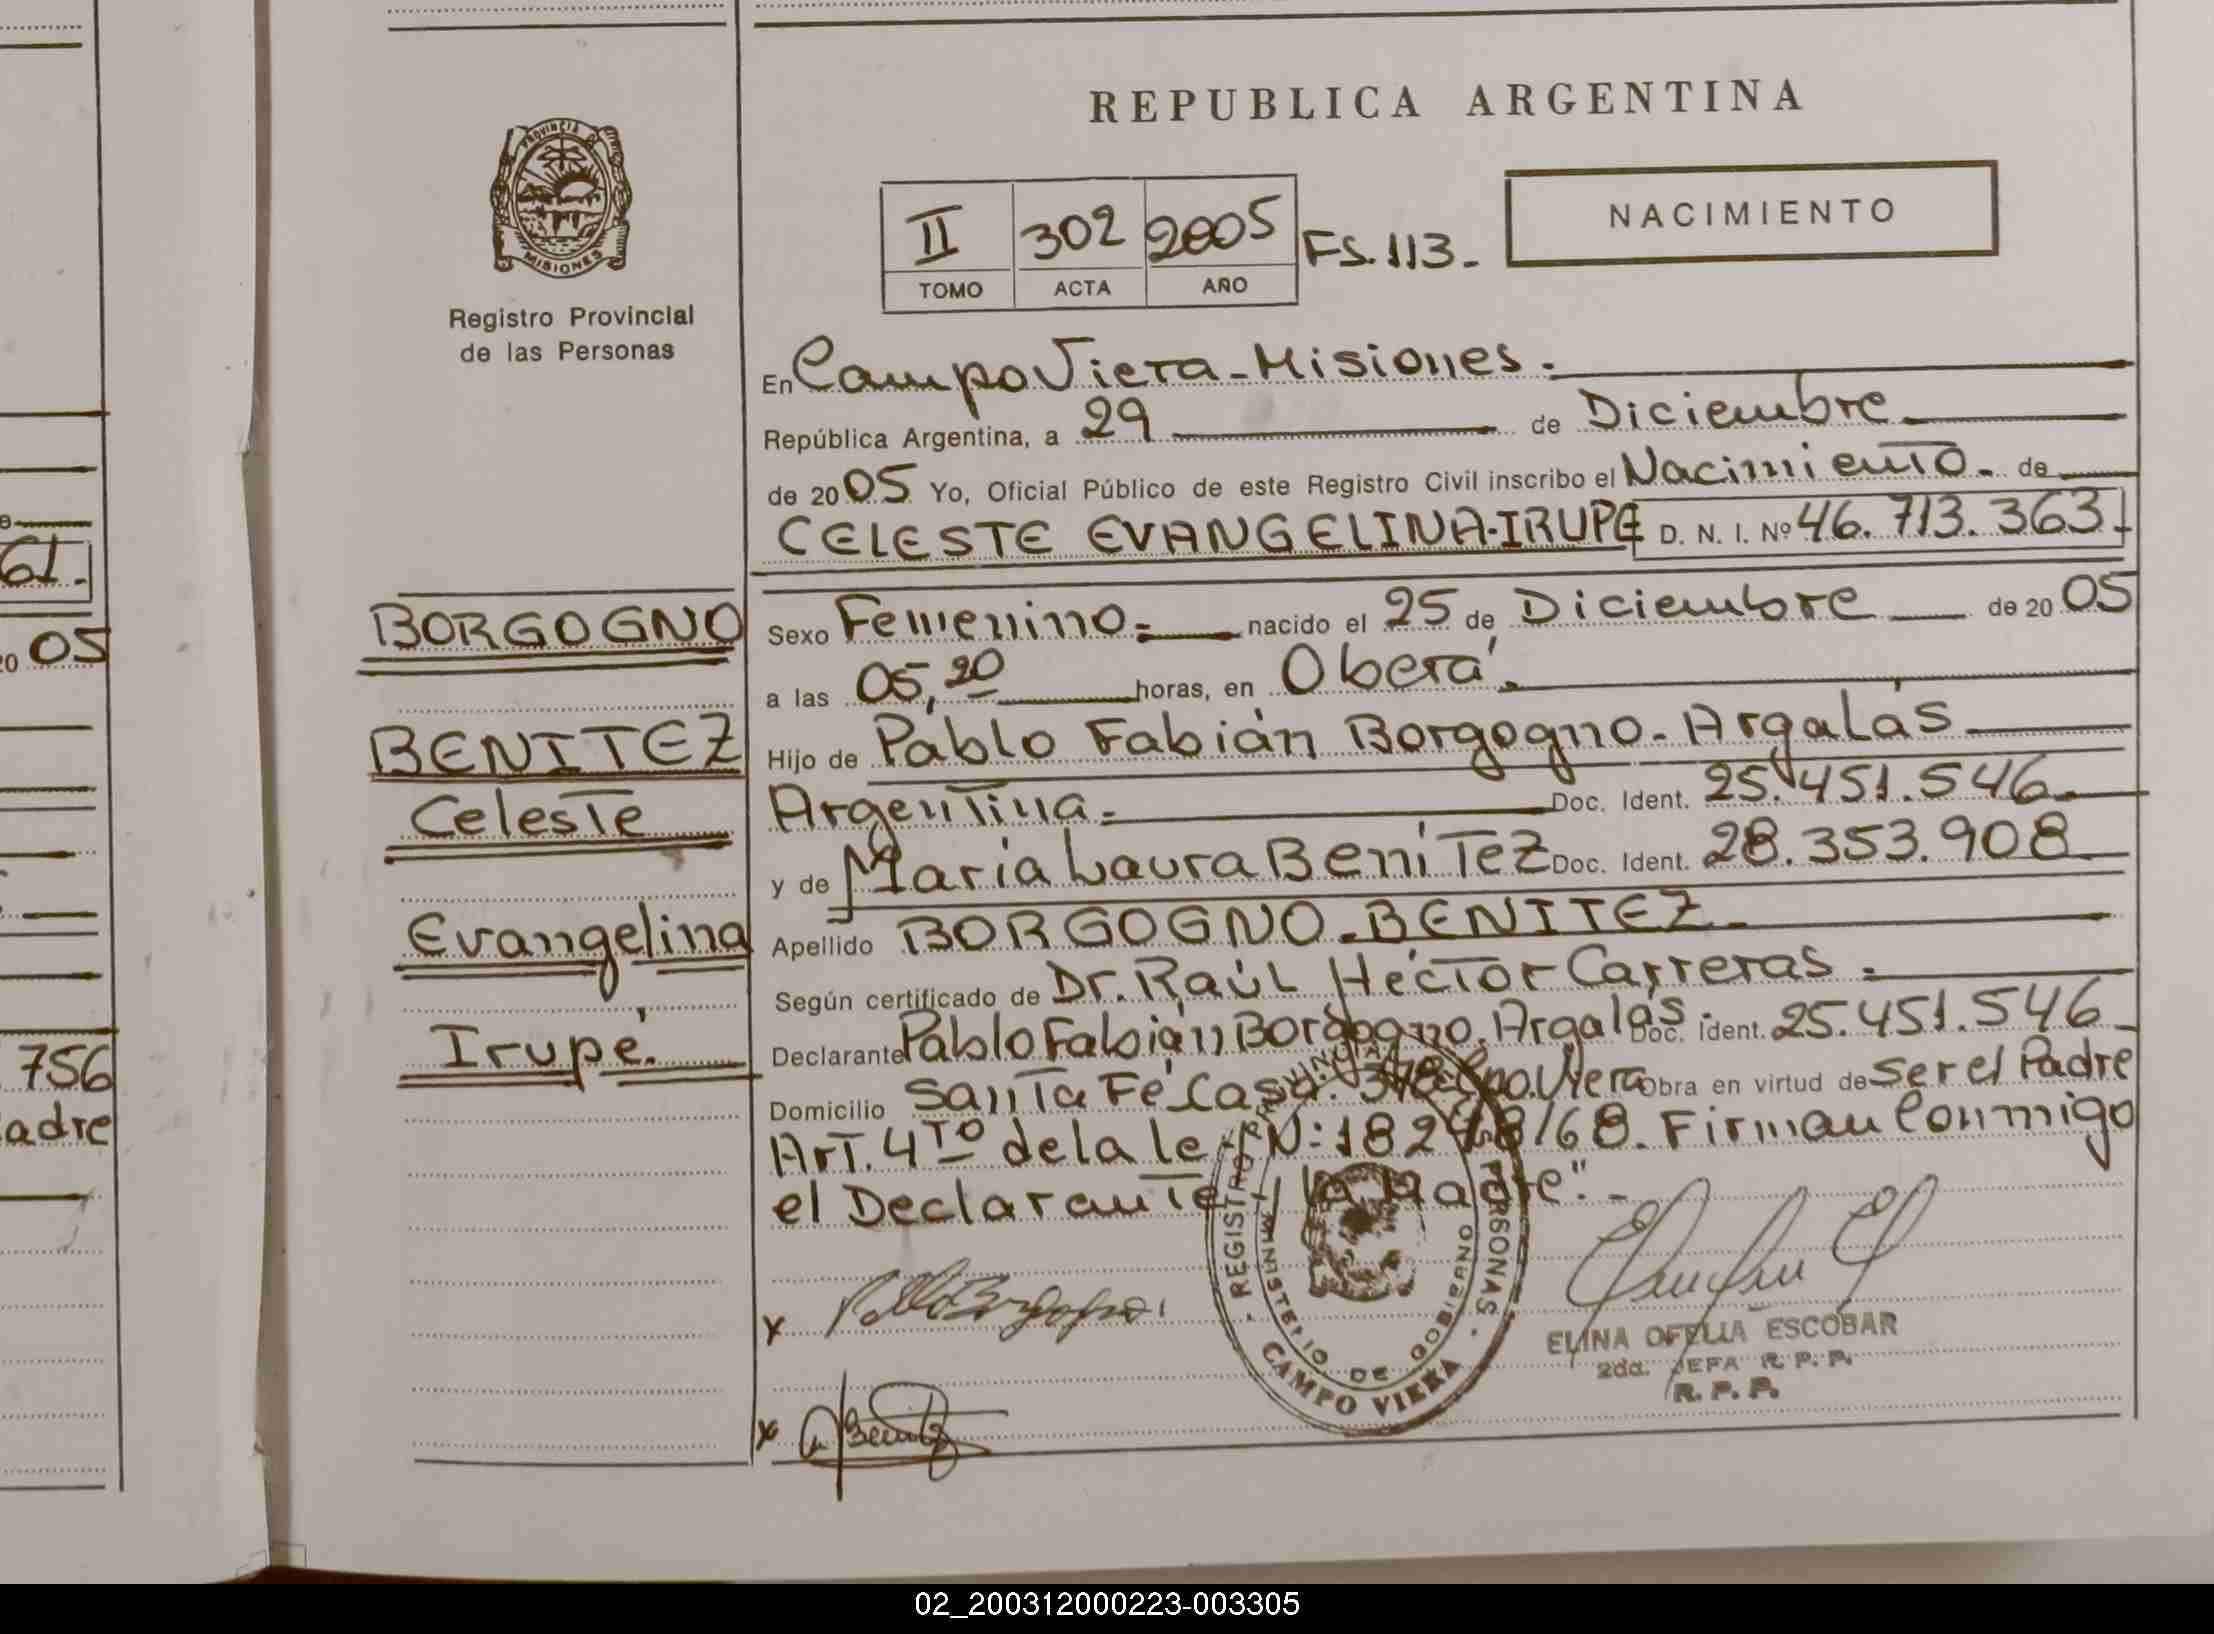 REPUBLICA ARGENTINA
PROVINCIA DE
MISIONES
Registro Provincial
de las Personas
II 302 2005 FS. 113.-
TOMO ACTA AÑO
NACIMIENTO
En Campo Viera - Misiones.
República Argentina, a 29 de Diciembre
de 2005 Yo, Oficial Público de este Registro Civil inscribo el Nacimiento.- de
CELESTE EVANGELINA-IRUPE D. N. I. Nº 46.713.363.
BORGOGNO
BENITEZ
Celeste
Evangelina
Irupé.
Sexo Femenino.- nacido el 25 de Diciembre de 2005
a las 05,20 horas, en Oberá.
Hijo de Pablo Fabián Borgogno - Argalás
Argentina.- Doc. Ident. 25.451.546.
y de María Laura Benitez Doc. Ident. 28.353.908
Apellido BORGOGNO-BENITEZ.-
Según certificado de Dr. Raúl Héctor Carreras.-
Declarante Pablo Fabián Borgogno. Argalás. Doc. Ident. 25.451.546
Domicilio Santa Fé Casa: 378 Cpo. Viera Obra en virtud de ser el Padre
Art. 4to de la ley N: 18248/68. Firman Conmigo
el Declarante y la Madre".-
REGISTRO PERSONAS
MINISTERIO DE GOBIERNO
CAMPO VIERA
ELINA OFELIA ESCOBAR
2da. JEFA R. P. P.
R. P. P.
x
x
61.
05
756
adre
02_200312000223-003305